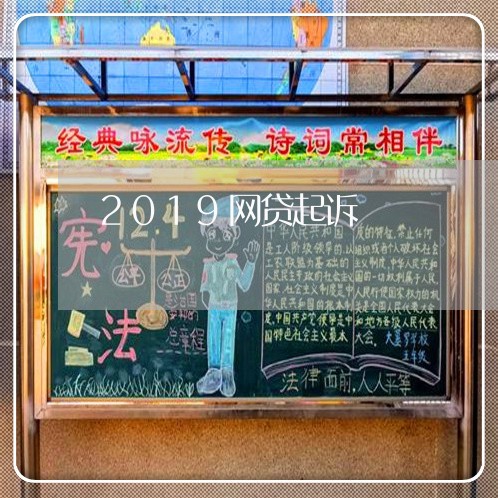 经典咏流传 诗词常相伴
2019网贷起诉
12.4
宪
法
公平 公正
总章程
中华人民共和国
是工人阶级领导的,以
工农联盟为基础的
人民民主专政的社会主义
国家,社会主义制度是中
华人民共和国的根本制
度,中国共产党领导是中
国特色社会主义最本
质的特征,禁止任何
组织或者个人破坏社会
主义制度,中华人民共和
国的一切权利属于人民,
人民行使国家权力的机
关是全国人民代表大会
和地方各级人民代表
大会。
五年级
法律面前,人人平等